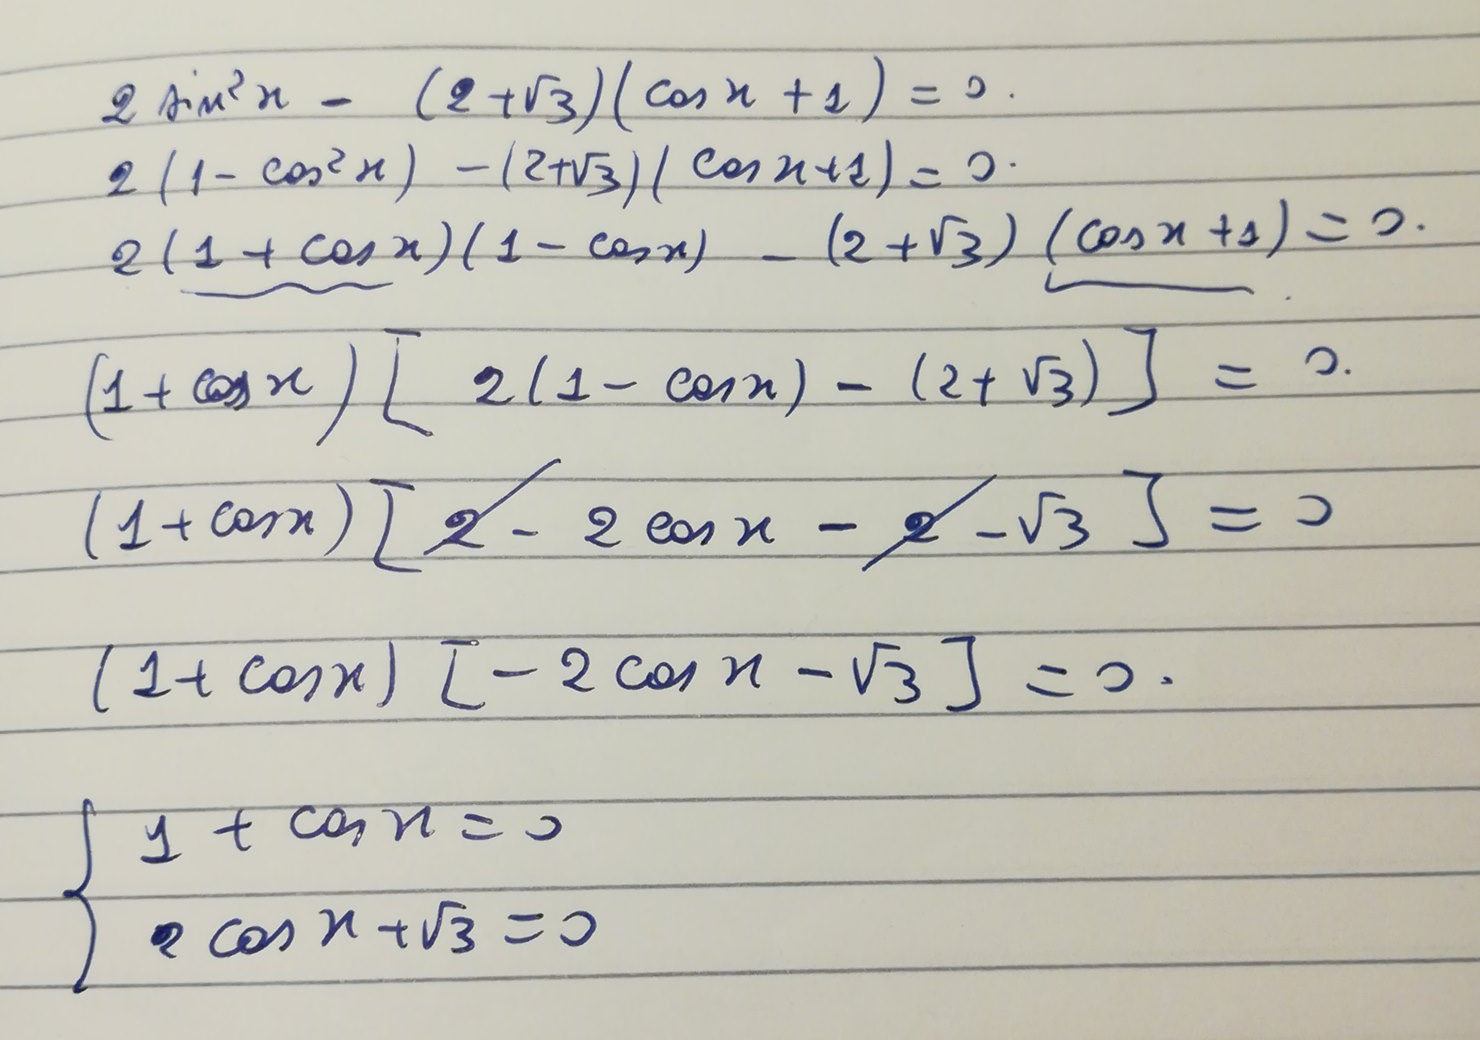 2 sin²x - (2+√3)(cos x + 1) = 0.
2(1 - cos²x) - (2+√3)(cos x+1) = 0.
2(1 + cos x)(1 - cos x) - (2+√3)(cos x + 1) = 0.
(1 + cos x)[2(1 - cos x) - (2+√3)] = 0.
(1 + cos x)[2 - 2 cos x - 2 - √3] = 0
(1 + cos x)[-2 cos x - √3] = 0.
{ 1 + cos x = 0
2 cos x + √3 = 0